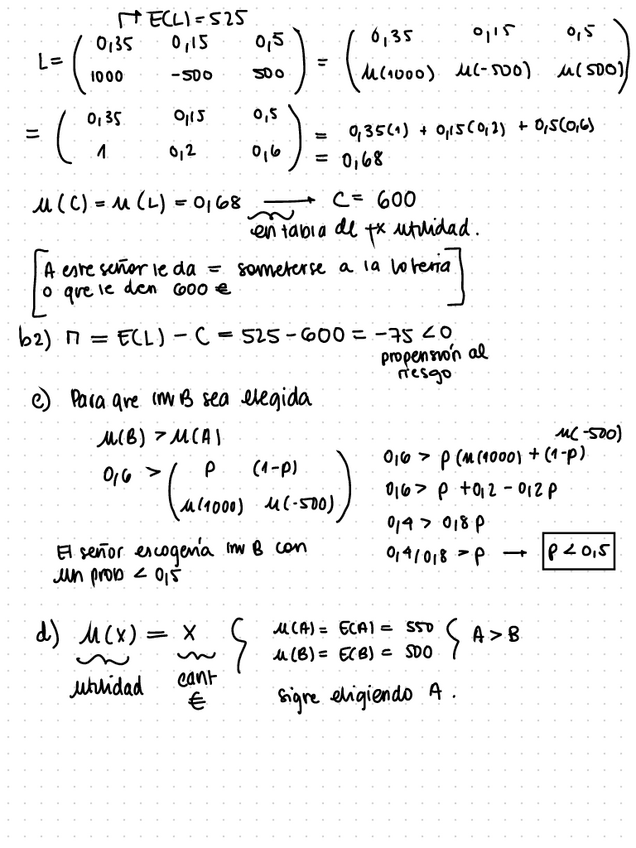 ↱ E(L) = 525
L = ( 0,35 0,15 0,5 ) = ( 0,35 0,15 0,5 )
( 1000 -500 500 ) ( μ(1000) μ(-500) μ(500) )
= ( 0,35 0,15 0,5 ) = 0,35(1) + 0,15(0,2) + 0,5(0,6)
( 1 0,2 0,6 ) = 0,68
μ(C) = μ(L) = 0,68 → C = 600
en tabla de fx utilidad.
[A este señor le da = someterse a la lotería
o que le den 600 €]
b2) Π = E(L) - C = 525 - 600 = -75 < 0
propensión al
riesgo
c) Para que inv B sea elegida
μ(B) > μ(A)
0,6 > ( p (1-p) )
( μ(1000) μ(-500) )
El señor escogería inv B con
un prob < 0,5
μ(-500)
0,6 > p(μ(1000) + (1-p)
0,6 > p + 0,2 - 0,2p
0,4 > 0,8p
0,4/0,8 > p → p < 0,5
d) μ(x) = x { μ(A) = E(A) = 550 { A > B
μ(B) = E(B) = 500
utilidad cant
€
sigue eligiendo A.